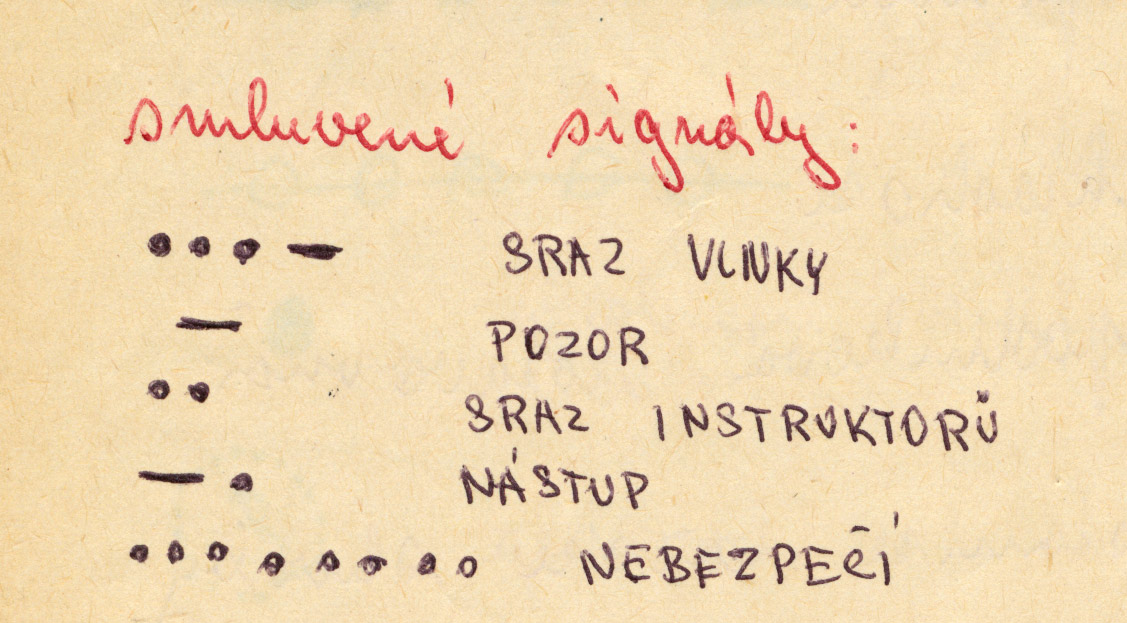 smluvené signály:
•••— SRAZ VLNKY
— POZOR
•• SRAZ INSTRUKTORŮ
—• NÁSTUP
•••••••• NEBEZPEČÍ